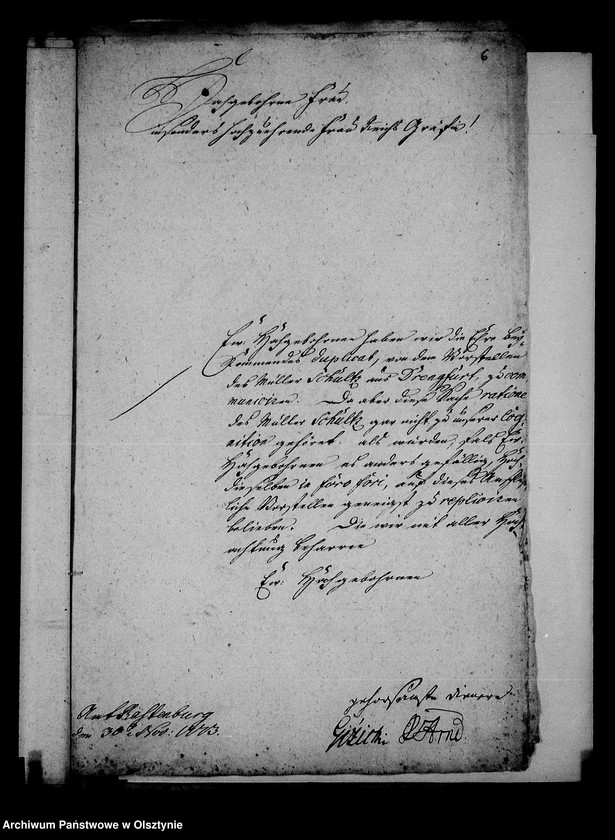 6
Hochgebohrne Frau
insonders hochzuehrende Frau Reichs Gräfin!
Ew. Hochgebohrnen haben wir die Ehre bey-
kommendes Duplicat, von dem Vorstellen
des Müller Schultz aus Drengfurt, zu com-
municiren. Da aber diese Sache ratione
des Müller Schultz gar nicht zu unserer Cog-
nition gehöret als würden, fals Ew.
Hochgebohrnen es anders gefällig, Hoch-
dieselben in foro fori, auf dieses
liche Vorstellen geneigst zu repliciren
belieben. Die wir mit aller Hoch-
achtung beharren
Ew. Hochgebohrnen
gehorsamste Diener
Amt Rastenburg
den 30t Nov: 1773.
Archiwum Państwowe w Olsztynie